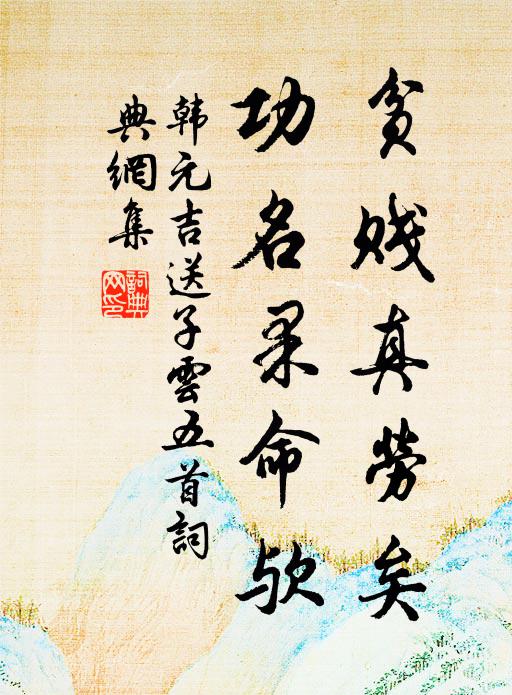 贫贱真劳矣
功名果命欤
韩元吉送子雲五首詞
典網集
詞典網印